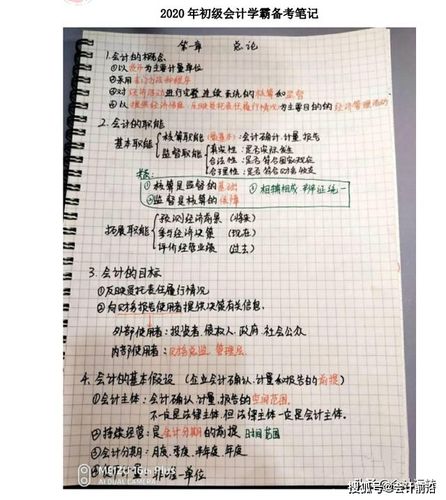 2020 年初级会计学霸备考笔记
第一章 总论
1.会计的概念
①以货币为主要计量单位
②采用专门方法和程序
③对经济活动进行完整 连续 系统的核算和监督
④以提供经济信息 反映受托责任履行情况为主要目的的经济管理活动
2.会计的职能
基本职能 核算职能(最基本):会计确认.计量.报告
监督职能 真实性:是否实际发生
合法性:是否符合国家规定
合理性:是否符合财务收支
①核算是监督的基础 ③相辅相成 辩证统一
②监督是核算的保障
拓展职能 预测经济前景 (将来)
参与经济决策 (现在)
评价经营业绩 (过去)
3.会计的目标
①反映受托责任履行情况
②向财务报告使用者提供决策有关信息.
外部使用者:投资者.债权人.政府.社会公众
内部使用者:财务总监.管理层
4.会计的基本假设 (企业会计确认.计量和报告的前提)
①会计主体:会计确认.计量.报告的空间范围.
不一定是法律主体.但法律主体一定是会计主体.
②持续经营:是会计分期的前提 时间范围
③会计分期:月度.季度.半年度.年度
唯一单位
MEIZU 16th Plus
AI DUAL CAMERA
搜狐号@会计前沿